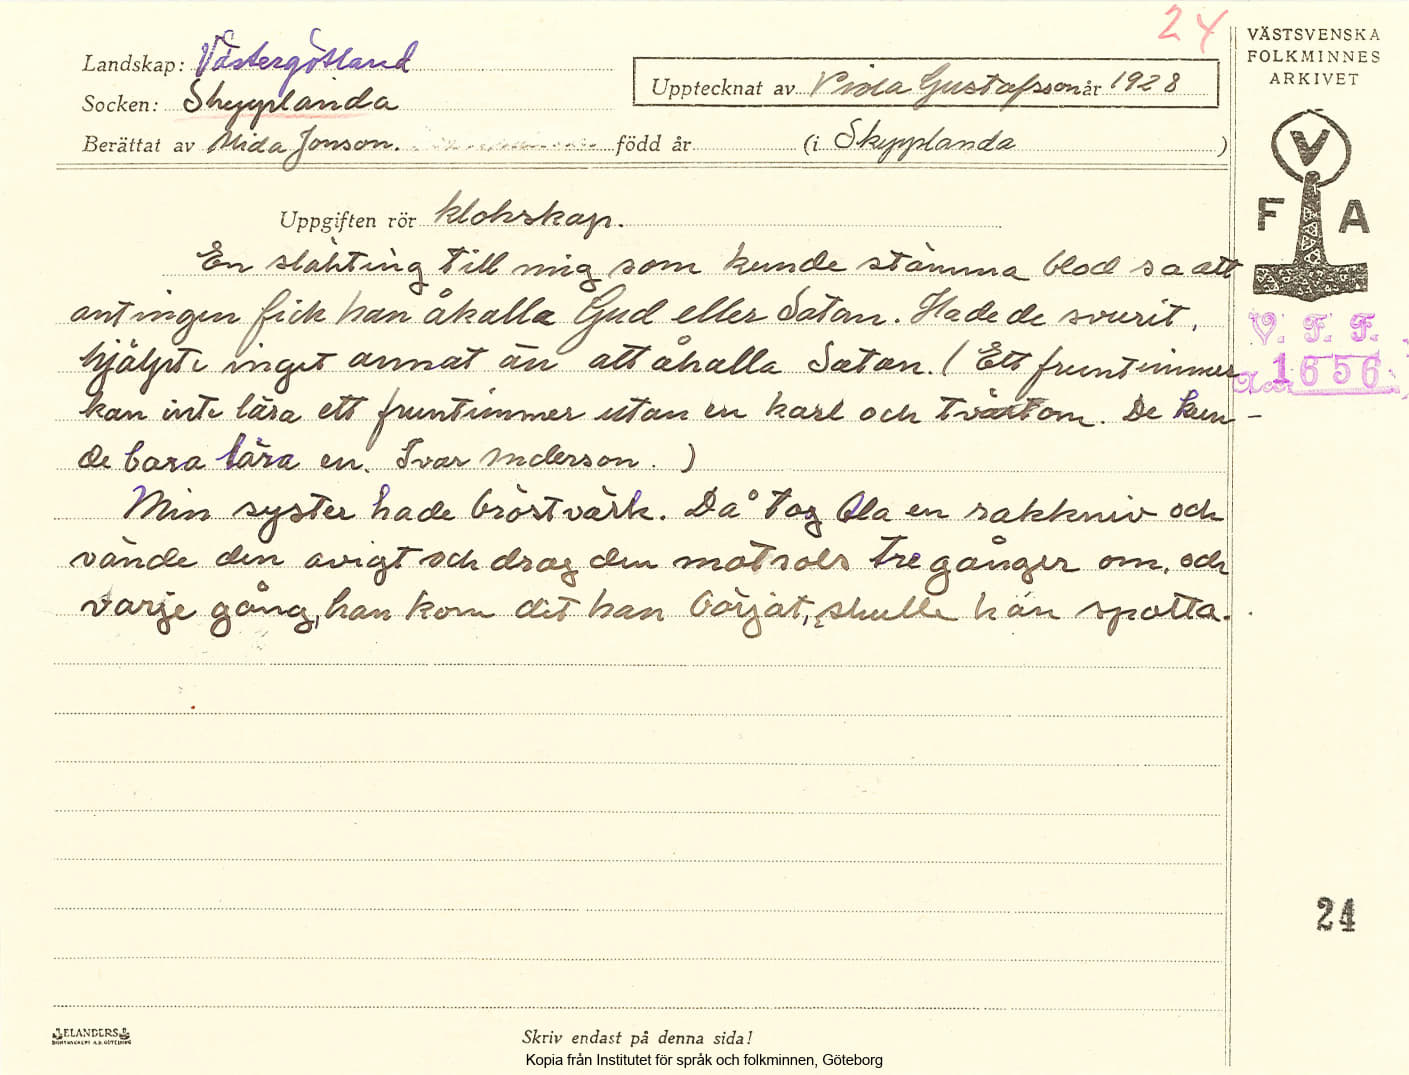 24
Landskap: Västergötland
Socken: Skepplanda
Berättat av Mida Jonson. född år (i Skepplanda )
Upptecknat av Viola Gustafsson år 1928
VÄSTSVENSKA
FOLKMINNES
ARKIVET
V
F A
V. F. F.
1656
Uppgiften rör klokskap.
En släkting till mig som kunde stämma blod sa att
antingen fick han åkalla Gud eller Satan. Hade de svurit,
hjälpte inget annat än att åkalla Satan. (Ett fruntimmer
kan inte lära ett fruntimmer utan en karl och tvärtom. De kun-
de bara lära en. Ivar Anderson.)
Min syster hade bröstvärk. Då tog Ola en rakkniv och
vände den avigt och drog den motsols tre gånger om, och
varje gång, han kom dit han börjat, skulle han spotta.
24
ELANDERS
Skriv endast på denna sida!
Kopia från Institutet för språk och folkminnen, Göteborg